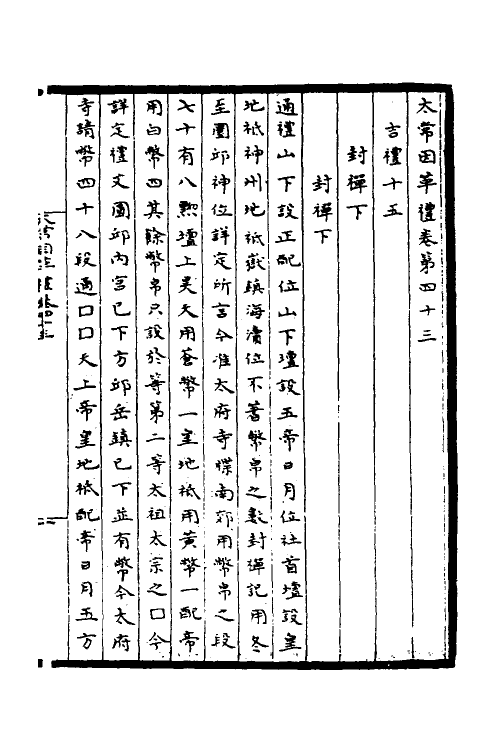 太常因革禮卷第四十三
吉禮十五
封禪下
封禪下
通禮山下設正配位山下壇設五帝日月位社首壇設皇
地祇神州地祇嶽鎮海瀆位不著幣帛之數封禪記用冬
至圜邱神位詳定所言今准太府寺牒南郊用幣帛之段
七十有八㸃壇上昊天用蒼幣一皇地祇用黃幣一配帝
用白幣四其餘幣帛只設於等第二等太祖太宗之口今
詳定禮文圜邱內官已下方邱岳鎮已下並有幣今太府
寺請幣四十八段通口口天上帝皇地祇配帝日月五方